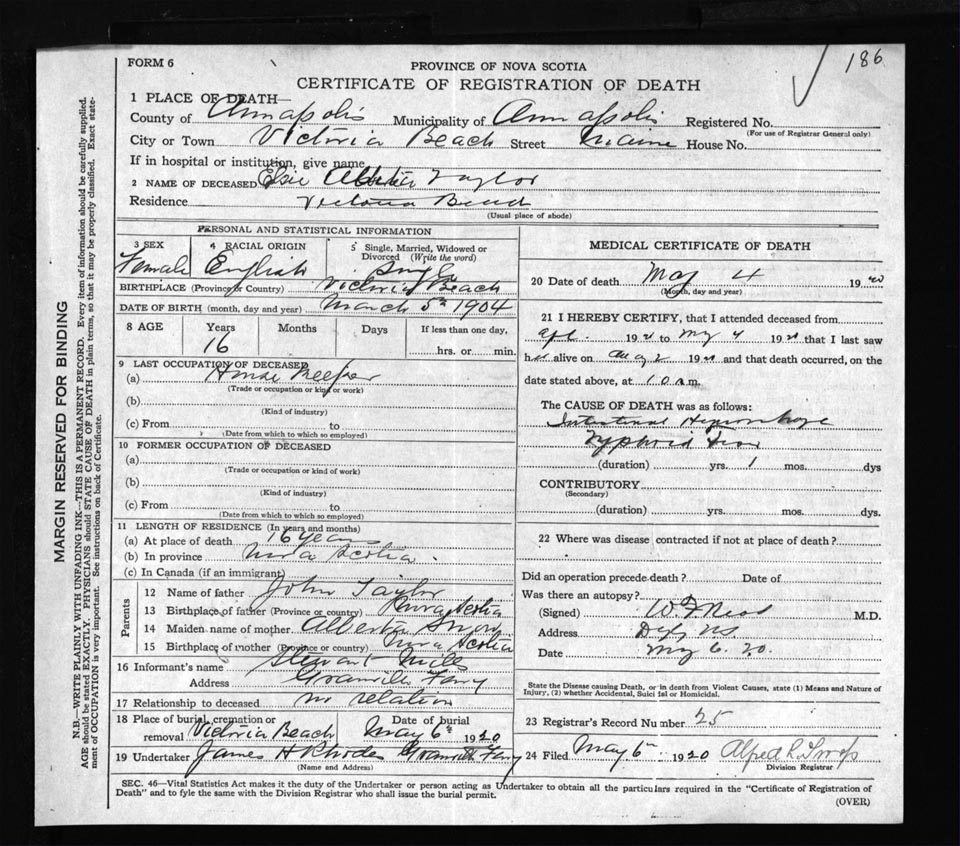 186
FORM 6
PROVINCE OF NOVA SCOTIA
CERTIFICATE OF REGISTRATION OF DEATH
1 PLACE OF DEATH—
County of Annapolis Municipality of Annapolis Registered No.
(For use of Registrar General only)
City or Town Victoria Beach Street House No.
If in hospital or institution, give name
2 NAME OF DECEASED Elsie Taylor
Residence Victoria Beach
(Usual place of abode)
PERSONAL AND STATISTICAL INFORMATION
3 SEX 4 RACIAL ORIGIN 5 Single, Married, Widowed or Divorced (Write the word)
Female English Single
BIRTHPLACE (Province or Country) Victoria Beach
DATE OF BIRTH (month, day and year) March 5th 1904
8 AGE Years Months Days If less than one day,
16 hrs. or min.
9 LAST OCCUPATION OF DECEASED
(a) House Keeper
(Trade or occupation or kind of work)
(b)
(Kind of industry)
(c) From to
(Date from which to which so employed)
10 FORMER OCCUPATION OF DECEASED
(a)
(Trade or occupation or kind of work)
(b)
(Kind of industry)
(c) From to
(Date from which to which so employed)
11 LENGTH OF RESIDENCE (In years and months)
(a) At place of death 16 years
(b) In province Nova Scotia
(c) In Canada (if an immigrant)
Parents
12 Name of father John Taylor
13 Birthplace of father (Province or country) Nova Scotia
14 Maiden name of mother Alberta Snow
15 Birthplace of mother (Province or country) Nova Scotia
16 Informant's name Stewart Mills
Address Granville Ferry
17 Relationship to deceased no relation
18 Place of burial, cremation or removal Victoria Beach Date of burial May 6th 1920
19 Undertaker James H Rhodes Granville Ferry
(Name and Address)
MEDICAL CERTIFICATE OF DEATH
20 Date of death May 4 19 20
(Month, day and year)
21 I HEREBY CERTIFY, that I attended deceased from
Apl. 19 20 to May 4 19 20 that I last saw
h er alive on May 2 19 20 and that death occurred, on the
date stated above, at 10 a.m.
The CAUSE OF DEATH was as follows:
Intestinal Hemorrhage
Typhoid Fever
(duration) yrs. 1 mos. dys
CONTRIBUTORY
(Secondary)
(duration) yrs. mos. dys.
22 Where was disease contracted if not at place of death?
Did an operation precede death? Date of
Was there an autopsy?
(Signed) M.D.
Address Digby NS
Date May 6. 20.
State the Disease causing Death, or in death from Violent Causes, state (1) Means and Nature of
Injury, (2) whether Accidental, Suicidal or Homicidal.
23 Registrar's Record Number 25
24 Filed May 6th 1920 Alfred
Division Registrar
SEC. 46—Vital Statistics Act makes it the duty of the Undertaker or person acting as Undertaker to obtain all the particulars required in the "Certificate of Registration of
Death" and to fyle the same with the Division Registrar who shall issue the burial permit.
(OVER)
MARGIN RESERVED FOR BINDING
N.B.—WRITE PLAINLY WITH UNFADING INK—THIS IS A PERMANENT RECORD. Every item of information should be carefully supplied.
AGE should be stated EXACTLY. PHYSICIANS should STATE CAUSE OF DEATH in plain terms, so that it may be properly classified. Exact state-
ment of OCCUPATION is very important. See instructions on back of Certificate.